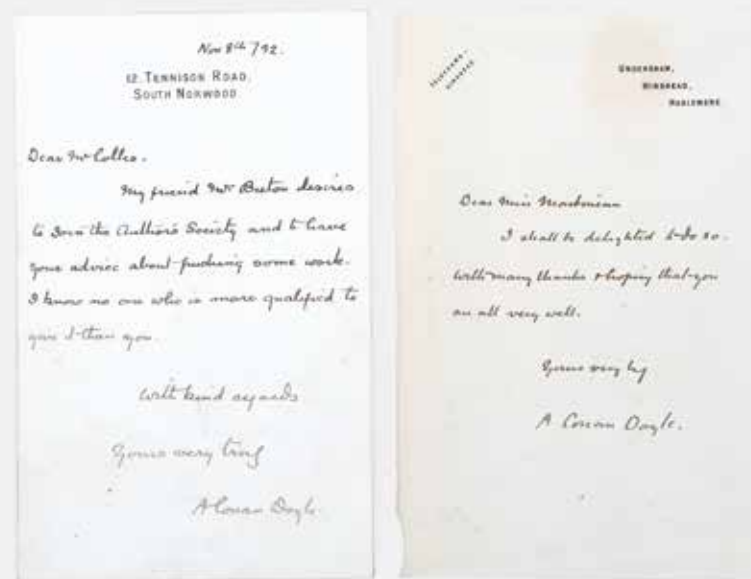 Nov 8th /92.
12. TENNISON ROAD,
SOUTH NORWOOD
Dear Mr Colles.
My friend Mr Buxton desires
to join the Author's Society and to have
your advice about pushing some work.
I know no one who is more qualified to
give it than you.
With kind regards
Yours very truly
A Conan Doyle.
TELEGRAMS,
HINDHEAD
UNDERSHAW,
HINDHEAD,
HASLEMERE
Dear Miss
I shall be delighted to do so.
With many thanks & hoping that you
are all very well.
Yours very truly
A Conan Doyle.